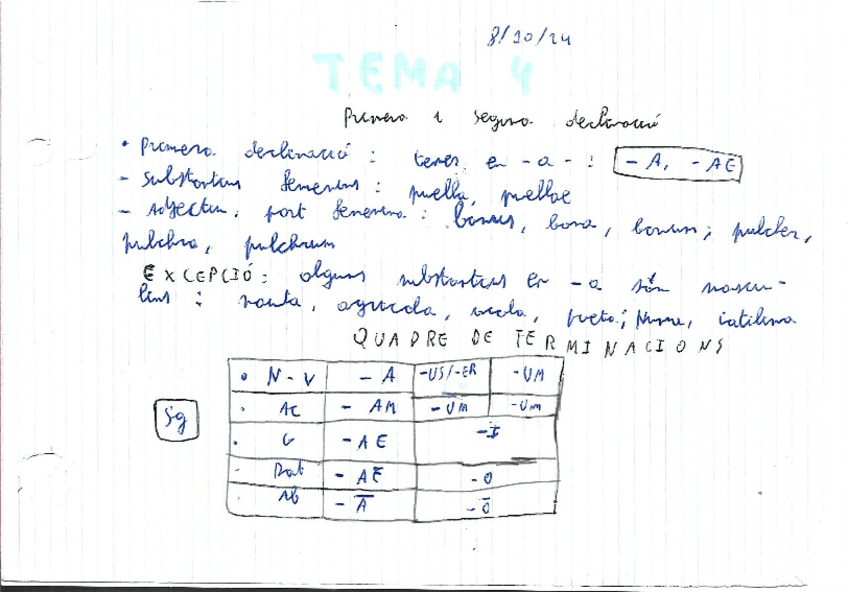 8/10/24
TEMA 4
Primera i segona declinació
• Primera declinació: temes en -a-: -A, -AE
- Substantius femenins: puella, puellae
- Adjectiu, part femenina: bonus, bona, bonum; pulcher,
pulchra, pulchrum
EXCEPCIÓ: alguns substantius en -a són mascu-
lins: nauta, agricola, poeta; Numa, Catilina
QUADRE DE TERMINACIONS
Sg
• N-V -A -US/-ER -UM
• AC -AM -UM -UM
• G -AE -I
- Dat -AE -O
• Ab -Ā -Ō